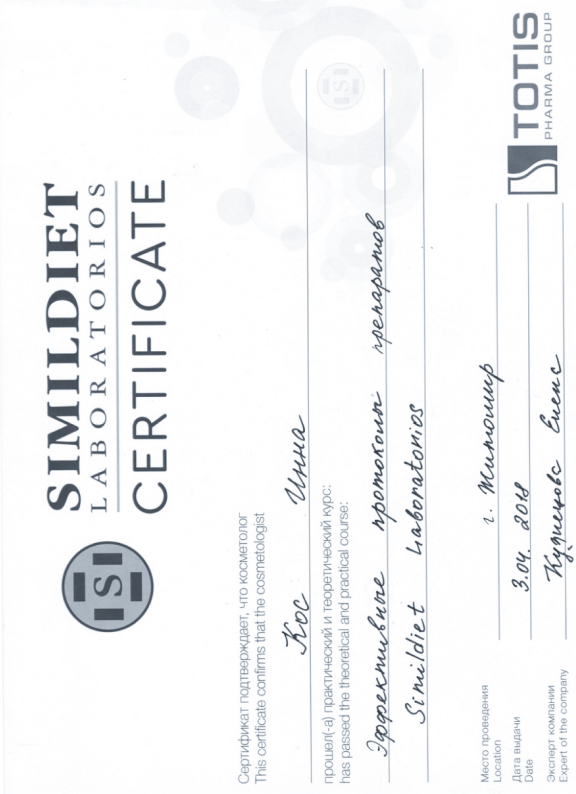 SIMILDIET
LABORATORIOS
CERTIFICATE
Сертификат подтверждает, что косметолог
This certificate confirms that the cosmetologist
Кос Инна
прошел(-а) практический и теоретический курс:
has passed the theoretical and practical course:
Эффективные протоколы препаратов
Simildiet Laboratorios
Место проведения
Location
г. Житомир
Дата выдачи
Date
3.04. 2018
Эксперт компании
Expert of the company
Кузнецова Елена
TOTIS
PHARMA GROUP